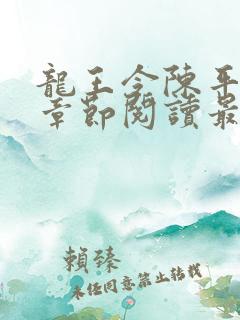 龍王令陳平
章節閱讀最
賴臻
未經同意禁止轉載